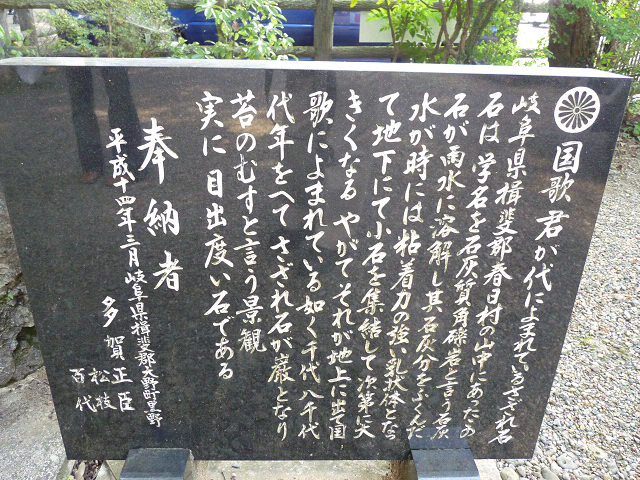 国歌君が代によまれているさざれ石
岐阜県揖斐郡春日村の山中にあったこの
石は学名を石灰質角礫岩と言う石灰
石が雨水に溶解し其石灰分をふくんだ
水が時には粘着力の強い乳状体となっ
て地下にて小石を集結して次第に大
きくなるやがてそれが地上に出国
歌によまれている如く千代八千代
代年をへてさざれ石が巌となり
苔のむすと言う景観
実に目出度い石である
奉納者
平成十四年三月岐阜県揖斐郡大野町黒野
多賀正臣
松枝
百代